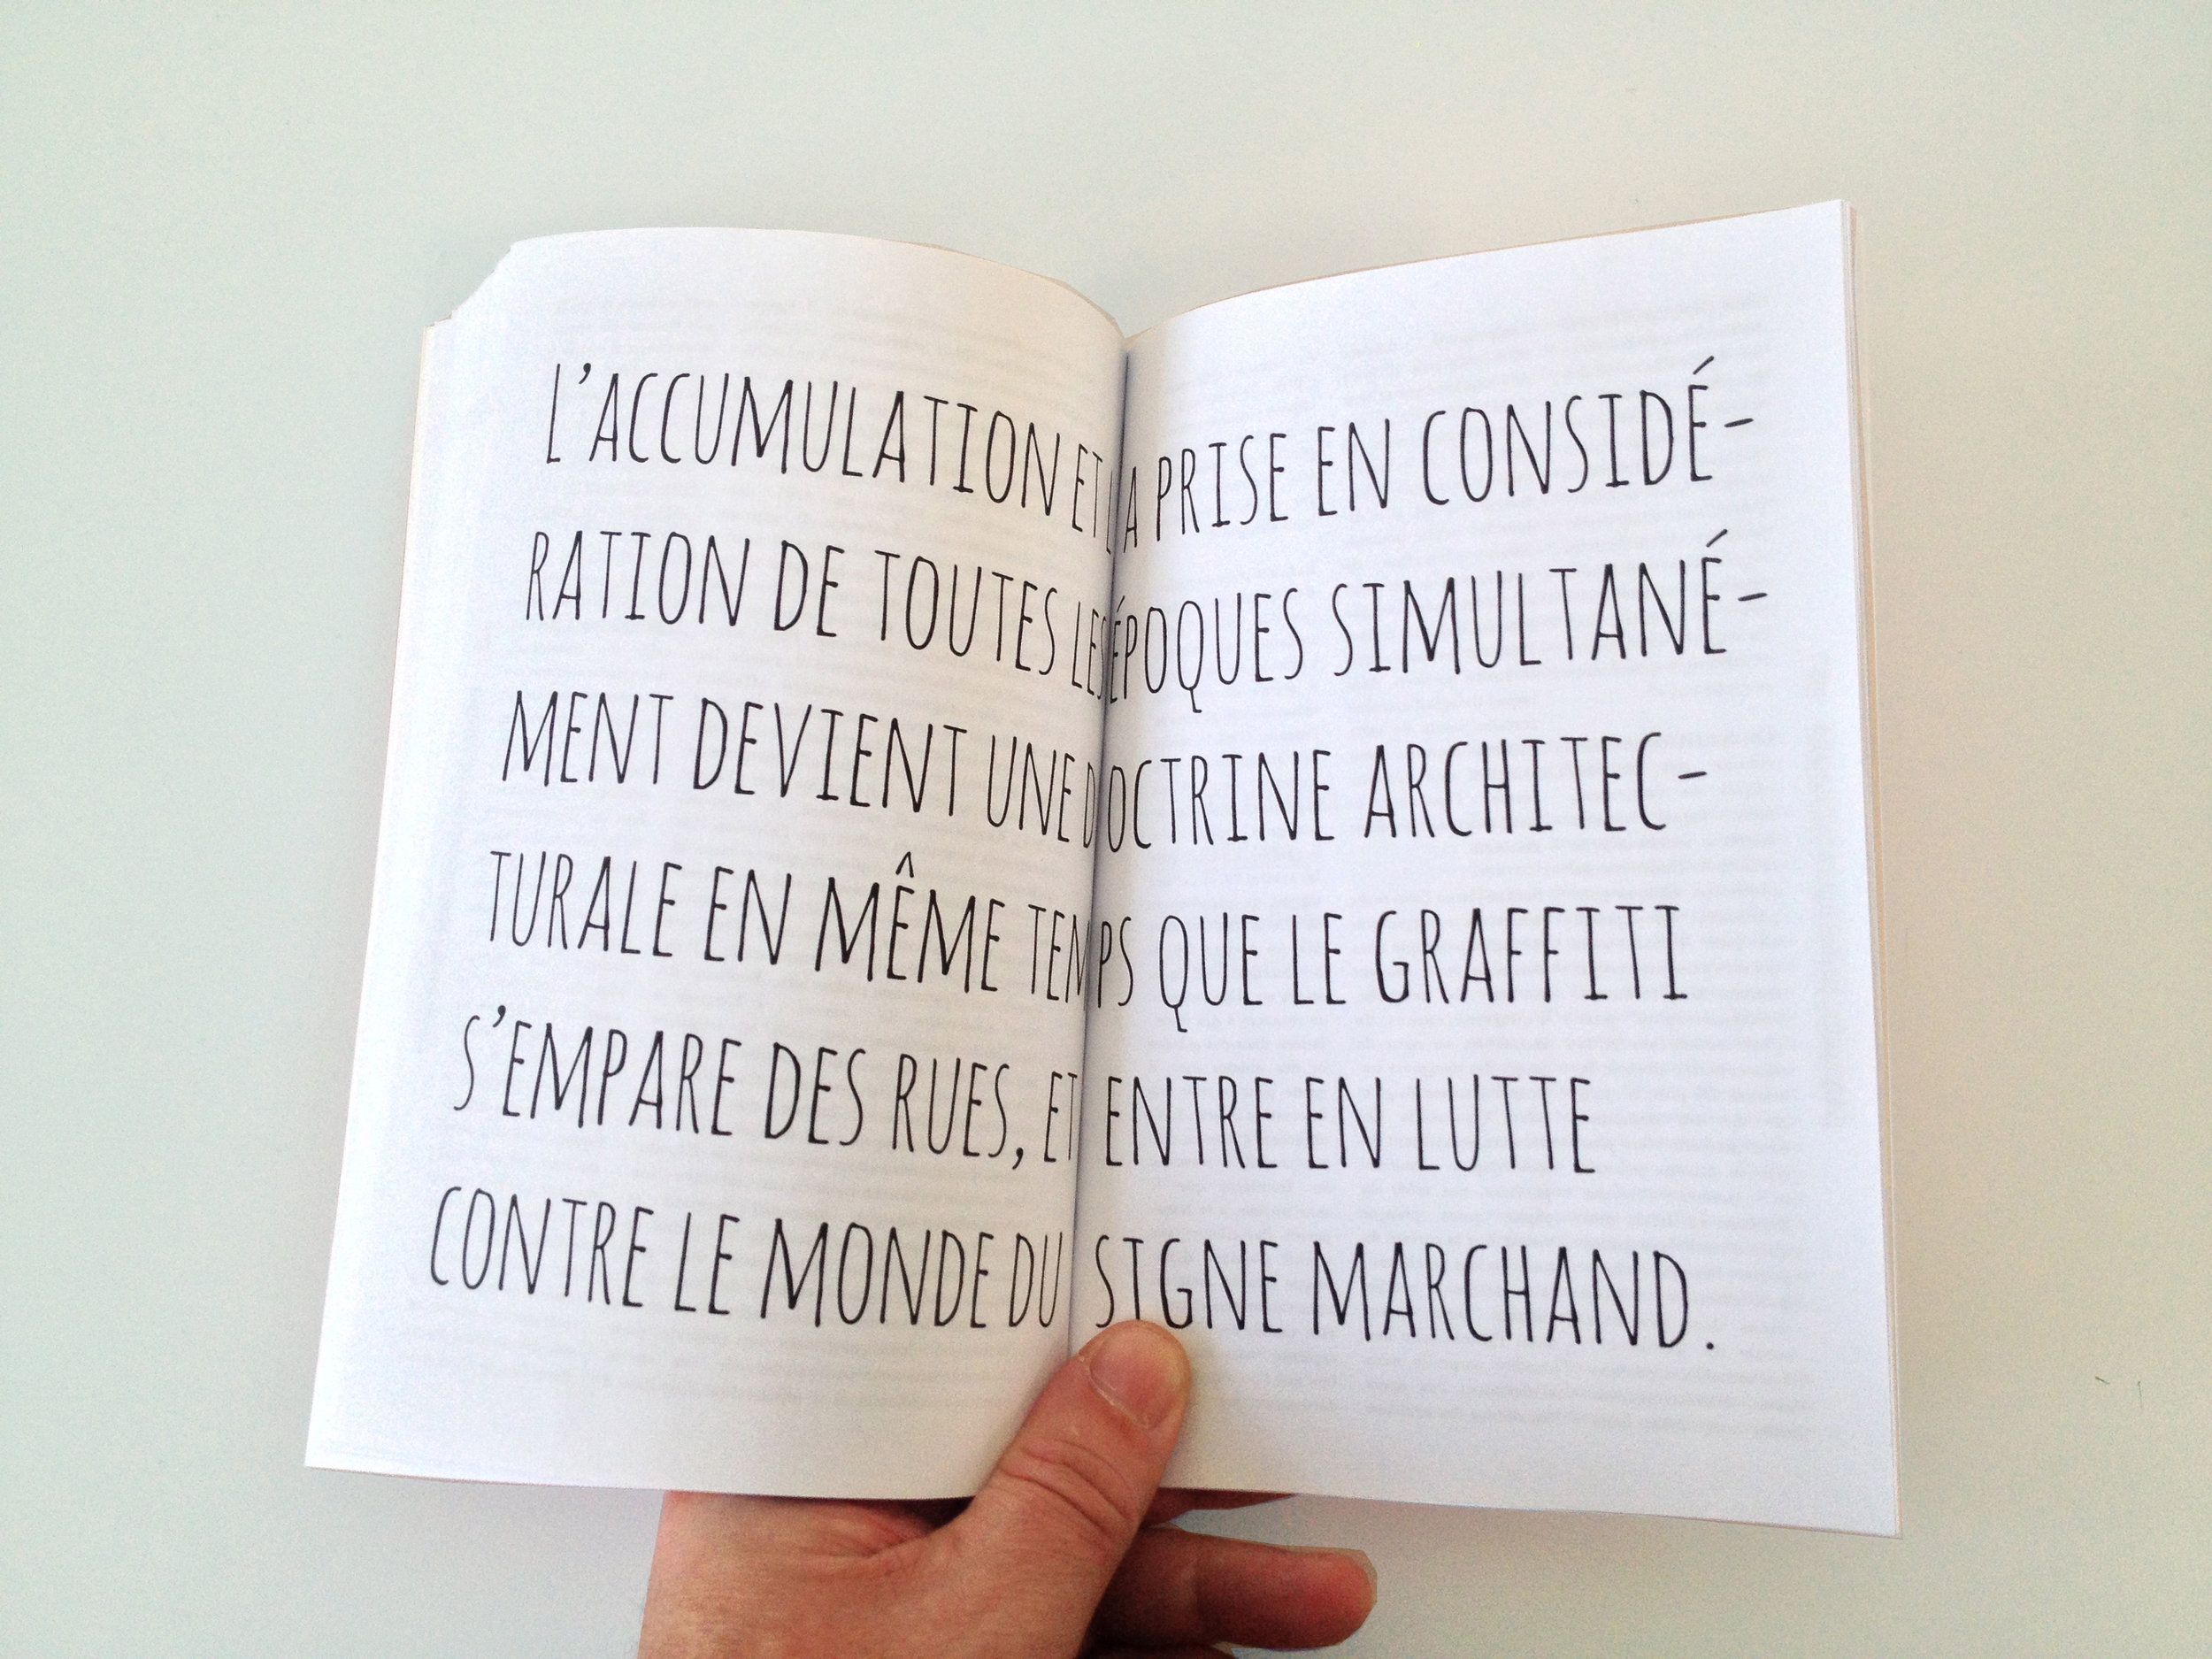 L'ACCUMULATION ET LA PRISE EN CONSIDÉ-
RATION DE TOUTES LES ÉPOQUES SIMULTANÉ-
MENT DEVIENT UNE DOCTRINE ARCHITEC-
TURALE EN MÊME TEMPS QUE LE GRAFFITI
S'EMPARE DES RUES, ET ENTRE EN LUTTE
CONTRE LE MONDE DU SIGNE MARCHAND.